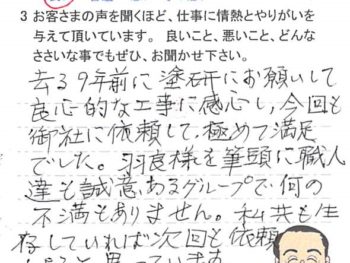 3 お客さまの声を聞くほど、仕事に情熱とやりがいを
与えて頂いています。良いこと、悪いこと、どんな
ささいな事でもぜひ、お聞かせ下さい。
去る9年前に塗研にお願いして
良心的な工事に感心し、今回も
御社に依頼して、極めて満足
でした。羽良様を筆頭に職人
達も誠意あるグループで何の
不満もありません。私共も生
存していれば次回も依頼
と思っています